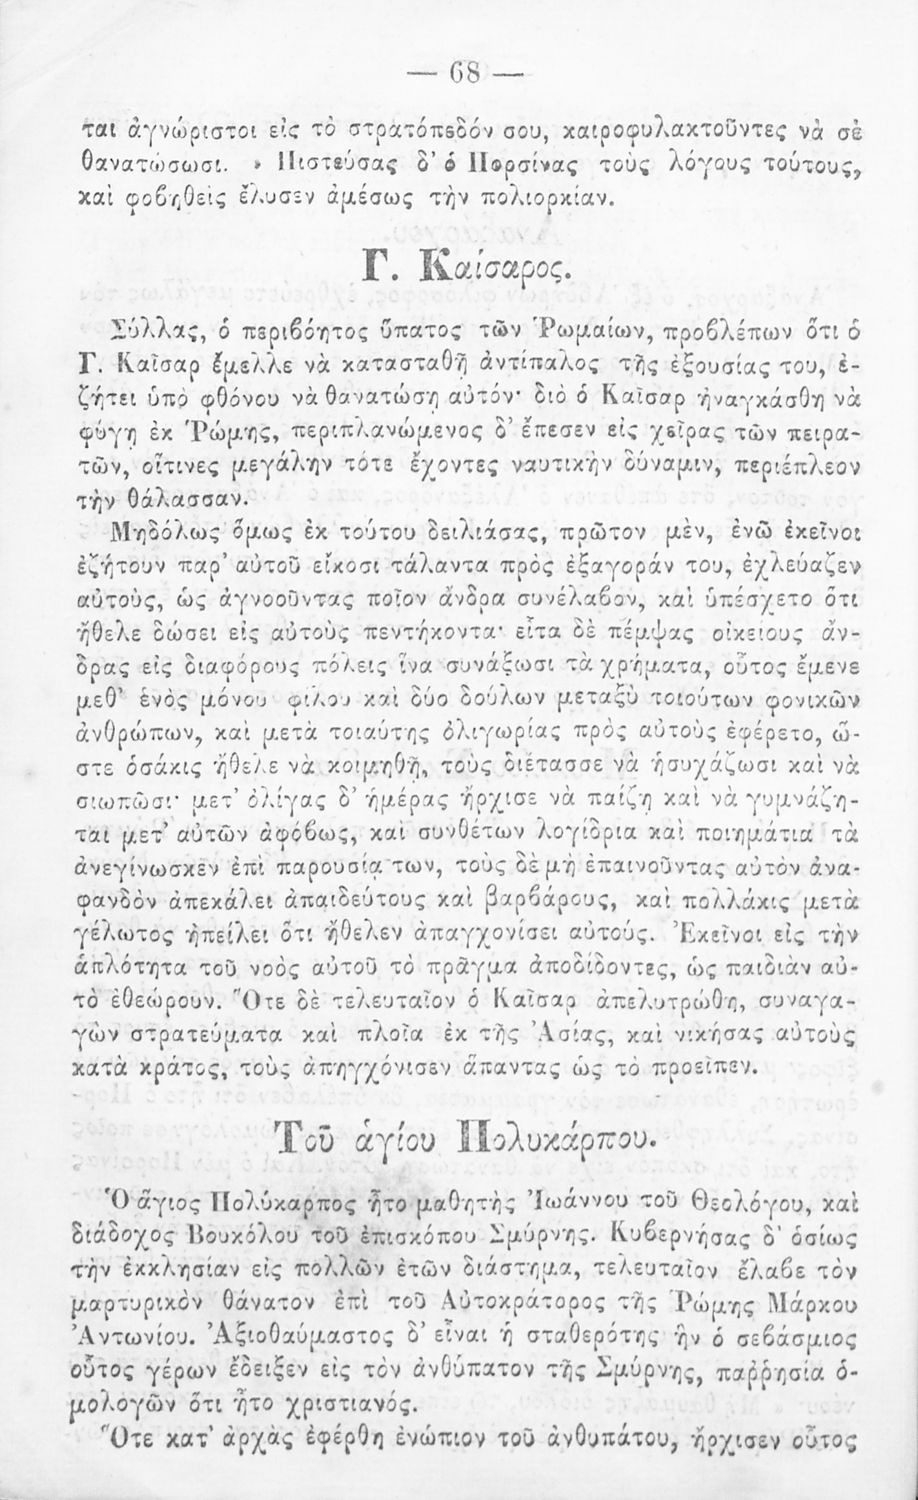 — 68 —
ται ἀγνώριστοι εἰς τὸ στρατόπεδόν σου, καιροφυλακτοῦντες νὰ σὲ
θανατώσωσι. » Πιστεύσας δ’ ὁ Πορσίνας τοὺς λόγους τούτους,
καὶ φοβηθεὶς ἔλυσεν ἀμέσως τὴν πολιορκίαν.
Γ. Καίσαρος.
Σύλλας, ὁ περιβόητος ὕπατος τῶν Ῥωμαίων, προβλέπων ὅτι ὁ
Γ. Καῖσαρ ἔμελλε νὰ κατασταθῇ ἀντίπαλος τῆς ἐξουσίας του, ἐ-
ζήτει ὑπὸ φθόνου νὰ θανατώσῃ αὐτόν· διὸ ὁ Καῖσαρ ἠναγκάσθη νὰ
φύγῃ ἐκ Ῥώμης, περιπλανώμενος δ’ ἔπεσεν εἰς χεῖρας τῶν πειρα-
τῶν, οἵτινες μεγάλην τότε ἔχοντες ναυτικὴν δύναμιν, περιέπλεον
τὴν θάλασσαν.
Μηδόλως ὅμως ἐκ τούτου δειλιάσας, πρῶτον μὲν, ἐνῶ ἐκεῖνοι
ἐζήτουν παρ’ αὐτοῦ εἴκοσι τάλαντα πρὸς ἐξαγοράν του, ἐχλεύαζεν
αὐτοὺς, ὡς ἀγνοοῦντας ποῖον ἄνδρα συνέλαβον, καὶ ὑπέσχετο ὅτι
ἤθελε δώσει εἰς αὐτοὺς πεντήκοντα· εἶτα δὲ πέμψας οἰκείους ἄν-
δρας εἰς διαφόρους πόλεις ἵνα συνάξωσι τὰ χρήματα, οὗτος ἔμενε
μεθ’ ἑνὸς μόνου φίλου καὶ δύο δούλων μεταξὺ τοιούτων φονικῶν
ἀνθρώπων, καὶ μετὰ τοιαύτης ὀλιγωρίας πρὸς αὐτοὺς ἐφέρετο, ὥ-
στε ὁσάκις ἤθελε νὰ κοιμηθῇ, τοὺς διέτασσε νὰ ἡσυχάζωσι καὶ νὰ
σιωπῶσι· μετ’ ὀλίγας δ’ ἡμέρας ἤρχισε νὰ παίζῃ καὶ νὰ γυμνάζη-
ται μετ’ αὐτῶν ἀφόβως, καὶ συνθέτων λογίδρια καὶ ποιημάτια τὰ
ἀνεγίνωσκεν ἐπὶ παρουσίᾳ των, τοὺς δὲ μὴ ἐπαινοῦντας αὐτὸν ἀνα-
φανδὸν ἀπεκάλει ἀπαιδεύτους καὶ βαρβάρους, καὶ πολλάκις μετὰ
γέλωτος ἠπείλει ὅτι ἤθελεν ἀπαγχονίσει αὐτούς. Ἐκεῖνοι εἰς τὴν
ἁπλότητα τοῦ νοὸς αὐτοῦ τὸ πρᾶγμα ἀποδίδοντες, ὡς παιδιὰν αὐ-
τὸ ἐθεώρουν. Ὅτε δὲ τελευταῖον ὁ Καῖσαρ ἀπελυτρώθη, συναγα-
γὼν στρατεύματα καὶ πλοῖα ἐκ τῆς Ἀσίας, καὶ νικήσας αὐτοὺς
κατὰ κράτος, τοὺς ἀπηγχόνισεν ἅπαντας ὡς τὸ προεῖπεν.
Τοῦ ἁγίου Πολυκάρπου.
Ὁ ἅγιος Πολύκαρπος ἦτο μαθητὴς Ἰωάννου τοῦ Θεολόγου, καὶ
διάδοχος Βουκόλου τοῦ ἐπισκόπου Σμύρνης. Κυβερνήσας δ’ ὁσίως
τὴν ἐκκλησίαν εἰς πολλῶν ἐτῶν διάστημα, τελευταῖον ἔλαβε τὸν
μαρτυρικὸν θάνατον ἐπὶ τοῦ Αὐτοκράτορος τῆς Ῥώμης Μάρκου
Ἀντωνίου. Ἀξιοθαύμαστος δ’ εἶναι ἡ σταθερότης ἣν ὁ σεβάσμιος
οὗτος γέρων ἔδειξεν εἰς τὸν ἀνθύπατον τῆς Σμύρνης, παῤῥησίᾳ ὁ-
μολογῶν ὅτι ἦτο χριστιανός.
Ὅτε κατ’ ἀρχὰς ἐφέρθη ἐνώπιον τοῦ ἀνθυπάτου, ἤρχισεν οὗτος